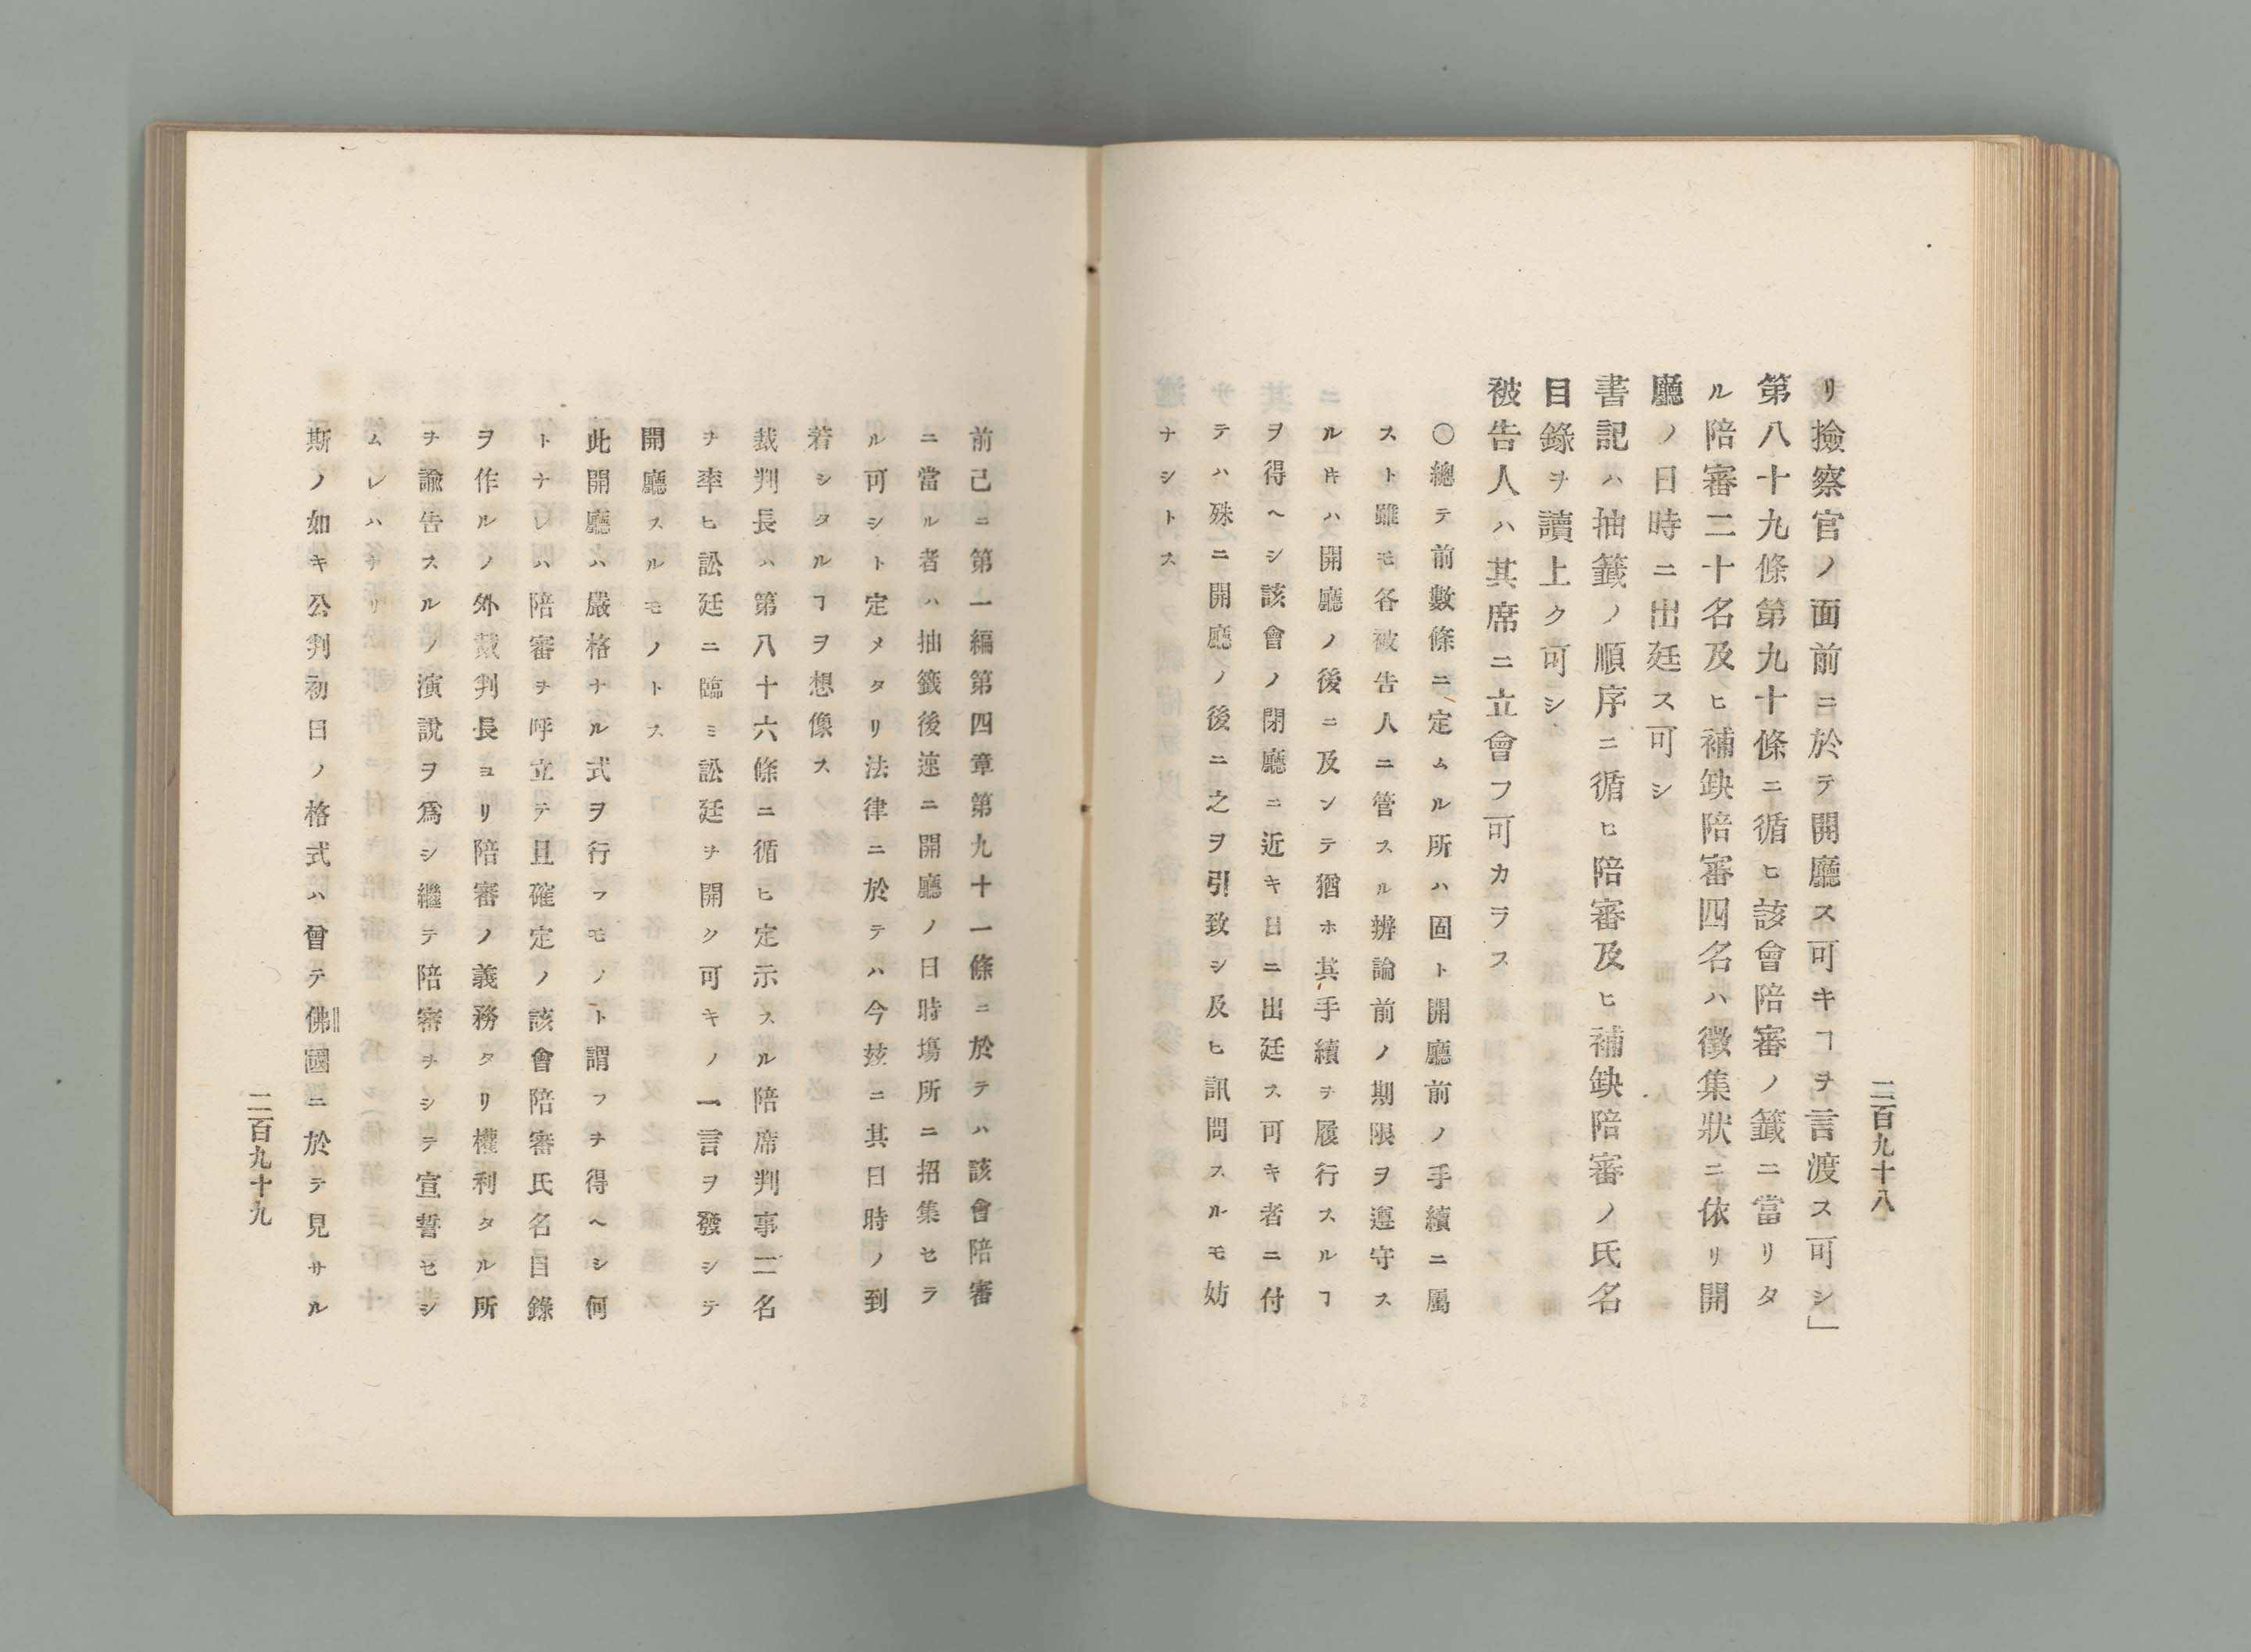 二百九十八
リ撿察官ノ面前ニ於テ開廳ス可キヿヲ言渡ス可シ」
第八十九條第九十條ニ循ヒ該會陪審ノ籤ニ當リタ
ル陪審二十名及ヒ補缺陪審四名ハ徵集狀ニ依リ開
廳ノ日時ニ出廷ス可シ
書記ハ抽籤ノ順序ニ循ヒ陪審及ヒ補缺陪審ノ氏名
目錄ヲ讀上ク可シ
被告人ハ其席ニ立會フ可カラス
〇總テ前數條ニ定ムル所ハ固ト開廳前ノ手續ニ屬
スト雖モ各被告人ニ管スル辨論前ノ期限ヲ遵守ス
ルキハ開廳ノ後ニ及ンテ猶ホ其手續ヲ履行スルヿ
ヲ得ヘシ該會ノ閉廳ニ近キ日ニ出廷ス可キ者ニ付
テハ殊ニ開廳ノ後ニ之ヲ引致シ及ヒ訊問スルモ妨
ナシトス
前已ニ第一編第四章第九十一條ニ於テハ該會陪審
ニ當ル者ハ抽籤後速ニ開廳ノ日時塲所ニ招集セラ
ル可シト定メタリ法律ニ於テハ今玆ニ其日時ノ到
若シタルヿヲ想像ス
裁判長ハ第八十六條ニ循ヒ定示スル陪席判事二名
ヲ率ヒ訟廷ニ臨ミ訟廷ヲ開ク可キノ一言ヲ發シテ
開廳スルモノトス
此開廳ハ嚴格ナル式ヲ行フモノト謂フヲ得ヘシ何
トナレハ陪審ヲ呼立テ且確定ノ該會陪審氏名目錄
ヲ作ルノ外裁判長ヨリ陪審ノ義務タリ權利タル所
ヲ諭告スルノ演說ヲ爲シ繼テ陪審ヲシテ宣誓セシ
ムレハナリ
斯ノ如キ公判初日ノ格式ハ曾テ佛國ニ於テ見サル
二百九十九